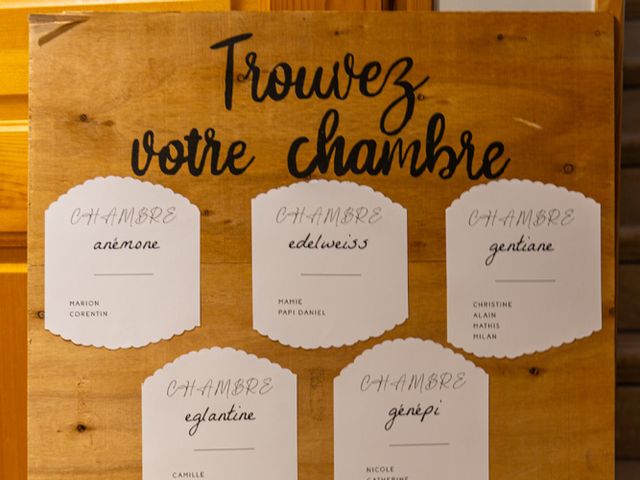 Trouvez
votre chambre
CHAMBRE
anémone
MARION
CORENTIN
CHAMBRE
edelweiss
MAMIE
PAPI DANIEL
CHAMBRE
gentiane
CHRISTINE
ALAIN
MATHIS
MILAN
CHAMBRE
eglantine
CAMILLE
CHAMBRE
génépi
NICOLE
CATHERINE